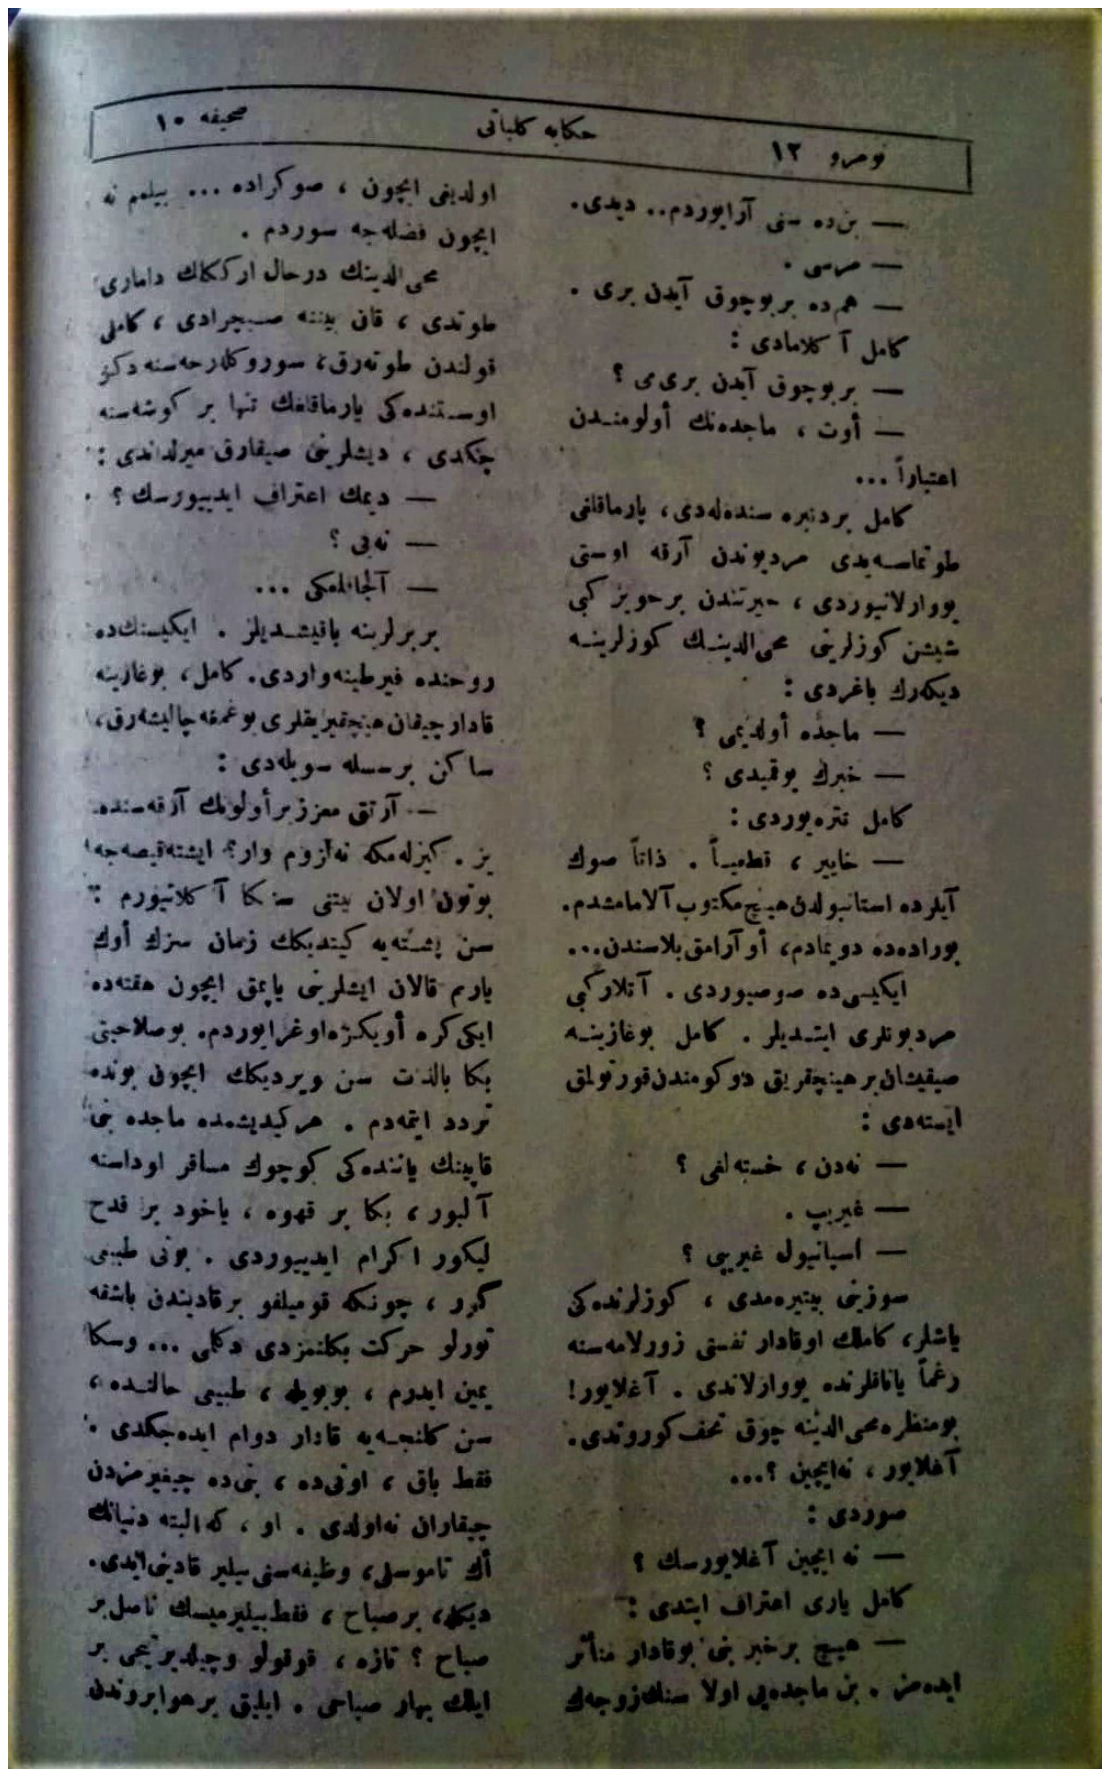 نومرو ١٢
حكايه كلياتى
صحيفه ١٠
— بن‌ده سنى آرايوردم.. ديدى.
— مرسى .
— هم‌ده بر بوچوق آيدن برى .
كامل آ كلامادى :
— بر بوچوق آيدن برى‌مى ؟
— أوت ، ماجده‌نك أولومنـدن
اعتباراً ...
كامل بردنبره سنده‌له‌دى، پارماقلغى
طوتماسـه‌يدى مرديوندن آرقه اوستى
يووارلانيوردى ، حيرتندن برحويز كبى
شيشن كوزلرينى محى‌الدينـك كوزلرينـه
ديكه‌رك باغردى :
— ماجده أولديمى ؟
— خبرك يوقميدى ؟
كامل تتره‌يوردى :
— خايير ، قطعيـاً . ذاتاً صوك
آيلرده استانبولدن هيچ مكتوب آلامامشدم.
بوراده‌ده دويمادم، أو آرامق بلاسندن...
ايكيسى‌ده صوصيوردى . آنلار كبى
مرديونلرى ايتـديلر . كامل بوغازينـه
صيقيشان بر هيچقريق دوكومندن قورتولمق
ايسته‌دى :
— نه‌دن ، خسته‌لغى ؟
— غيريپ .
— اسپانيول غيريپى ؟
سوزينى بيتيره‌مدى ، كوزلرنده‌كى
ياشلر، كاملك اوقادار نفسنى زورلامه‌سنه
رغماً ياناقلرنده يووارلاندى . آغلايور!
بومنظره محى‌الدينه چوق تحف كوروندى.
آغلايور ، نه‌ايچين ؟...
صوردى :
— نه ايچين آغلايورسك ؟
كامل يارى اعتراف ايتدى :
— هيـچ بر خبر بنى بوقادار متأثر
ايده‌مز . بن ماجده‌يى اولا سنك زوجه‌ك
اولديغى ايچون ، صوكراده ... بيلمم نه
ايچون فضله‌جه سوردم .
محى‌الدينك درحال اركـكلك دامارى
طوتدى ، قان بيننه صـيچرادى ، كاملى
قولندن طوته‌رق، سوروكلرجه‌سنه دكز
اوسـتنده‌كى پارماقلغك تنها بر كوشه‌سنه
چكدى ، ديشلرينى صيقارق ميرلداندى :
— ديمك اعتراف ايدييورسك ؟
— نه‌يى ؟
— آلچاقلغكى ...
بربرلرينه باقيشـديلر . ايكيسنك‌ده
روحنده فيرطينه واردى. كامل، بوغازينه
قادار چيقان هيچقيريقلرى بوغمغه چاليشه‌رق،
ساكن بر سسله سويله‌دى :
— آرتق معزز بر أولونك آرقه‌سنده
يز . كيزله‌مكه نه لزوم وار؟ ايشته قيصه‌جه
بوتون اولان بيتنى سكا آ كلاتيورم :
سن پشته‌يه كيتديكك زمان سزك أوك
يارم قالان ايشلرينى ياپمق ايچون هفته‌ده
ايكى كره أويكزه اوغرايوردم. بوصلاحيتى
بكا بالذت سن ويرديكك ايچون بونده
تردد ايتمه‌دم . هر كيديشمده ماجده بنى
قاپينك ياننده‌كى كوچوك مسافر اوداسنه
آلیور ، بكا بر قهوه ، ياخود بر قدح
ليكور اكرام ايدييوردى . بونى طبيعى
كرر ، چونكه قوميلفو بر قاديندن باشقه
تورلو حركت بكلنمزدى دكلمى ... وسكا
يمين ايدرم ، بويويله ، طبيعى حالنـده ،
سن كلنجـه‌يه قادار دوام ايده‌جكدى .
فقط باق ، اونى‌ده ، بنى‌ده چيغيرمزدن
چيقاران نه‌اولدى . او ، كه البته دنيانك
أك ناموسلى، وظيفه‌سنى بيلير قادينى ايدى.
ديكله، بر صباح ، فقط بيليرميسك ناصل بر
صباح ؟ تازه ، قوقولو وچيلديرتيجى بر
ايلك بهار صباحى . ايليق بر هوا بروندن